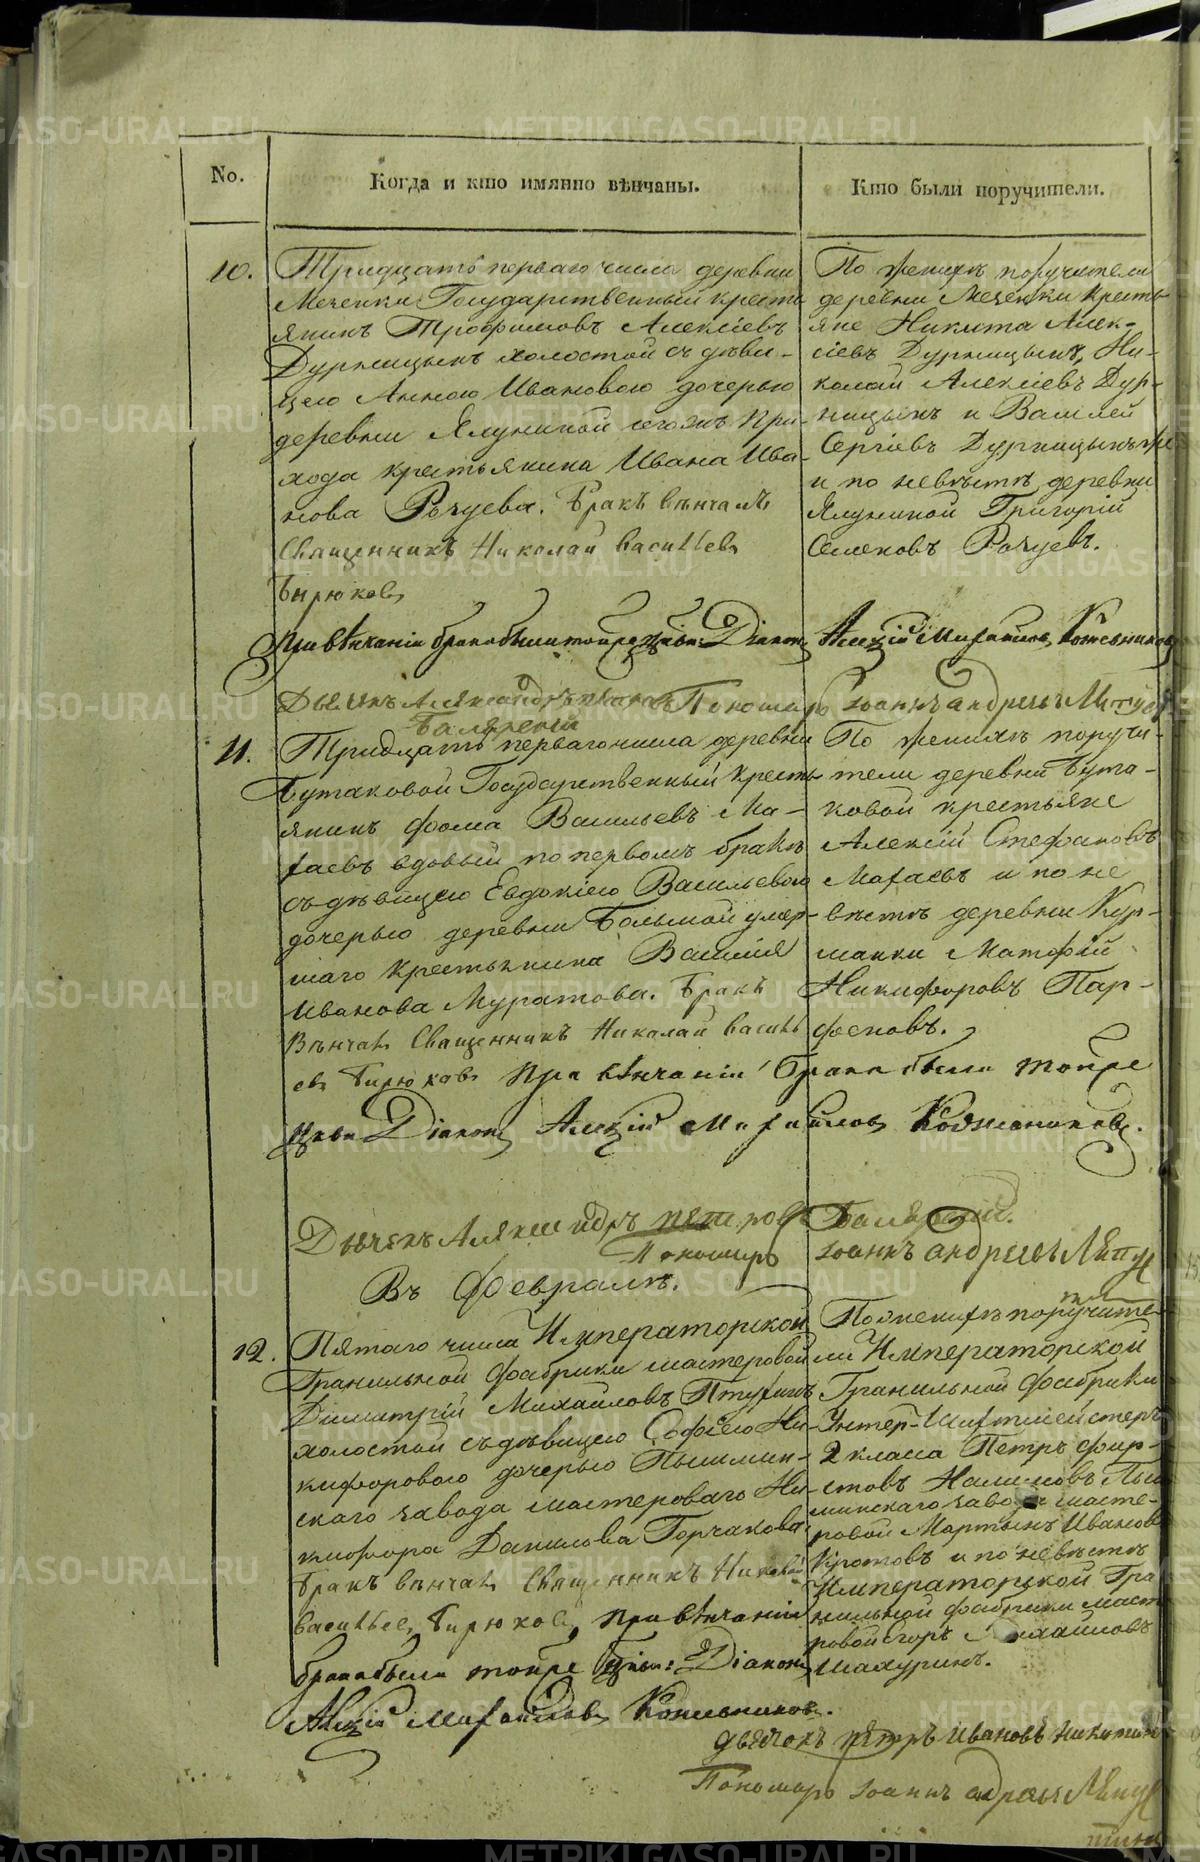 No.
Когда и кто имянно вѣнчаны.
Кто были поручители.
10.
Тридцать перваго числа деревни
Меченки Государственный кресть
янинъ Трофимовъ Алексіевъ
Дурницынъ холостой съ дѣви-
цею Анною Ивановою дочерью
деревни Ялуниной сегожъ при-
хода крестьянина Ивана Ива-
нова Рачуева. Бракъ вѣнчалъ
Священникъ Николай Васильевъ
Бирюковъ
По женихѣ поручители
деревни Меченки кресть
яне Никита Алек-
сіевъ Дурницынъ, Ни-
колай Алексіевъ Дур-
ницынъ и Василей
Сергіевъ Дурницынъ же
и по невѣстѣ деревни
Ялуниной Григорій
Семеновъ Рачуевъ.
При вѣнчаніи брака были тойже церкви Діаконъ Алексій Михайловъ Кожевниковъ
Дьячекъ Александръ Петровъ Пономарь Іоаннъ Андреевъ
11.
Тридцать перваго числа деревни
Бутаковой Государственный кресть
янинъ Фома Васильевъ Ма-
хаевъ вдовый по первомъ бракѣ
съ дѣвицею Евдокіею Васильевою
дочерью деревни Большой умер-
шаго крестьянина Василія
Иванова Муратова. Бракъ
Вѣнчалъ Священникъ Николай Василь
евъ Бирюковъ При вѣнчаніи Брака были тойже
По женихѣ поручи-
тели деревни Бута-
ковой крестьяне
Алексій Стефановъ
Махаевъ и по не
вѣстѣ деревни Кур-
манки Матфій
Никифоровъ Пар-
феновъ.
Церкви Діаконъ Алексій Михайловъ Кожевниковъ.
Дьячекъ Александръ Петровъ
Пономарь Іоаннъ Андреевъ
Въ Февралѣ.
12.
Пятаго числа Императорской
Гранильной фабрики мастеровой
Димитрій Михайловъ Птухинъ
холостой съ дѣвицею Софіею Ни-
кифоровою дочерью Пышмин-
скаго завода мастероваго Ни-
кифора Данилова Горчакова.
Бракъ вѣнчалъ Священникъ Николай
Васильевъ Бирюковъ, При вѣнчаніи
брака были тойже Церкви: Діаконъ
Алексій Михайловъ Кожевниковъ.
По женихѣ поручите-
ли Императорской
Гранильной фабрики
Унтер-Шихтмейстеръ
2 класса Петръ Фир-
стовъ Налимовъ Пыш
минскаго завода масте-
ровой Мартынъ Ивановъ
Кротовъ и по невѣстѣ
Императорской Гра
нильной фабрики масте
ровой Егоръ Михайловъ
Шахуринъ.
Дьячокъ Петръ Ивановъ Никитинъ
Пономарь Іоаннъ Андреевъ
METRIKI.GASO-URAL.RU